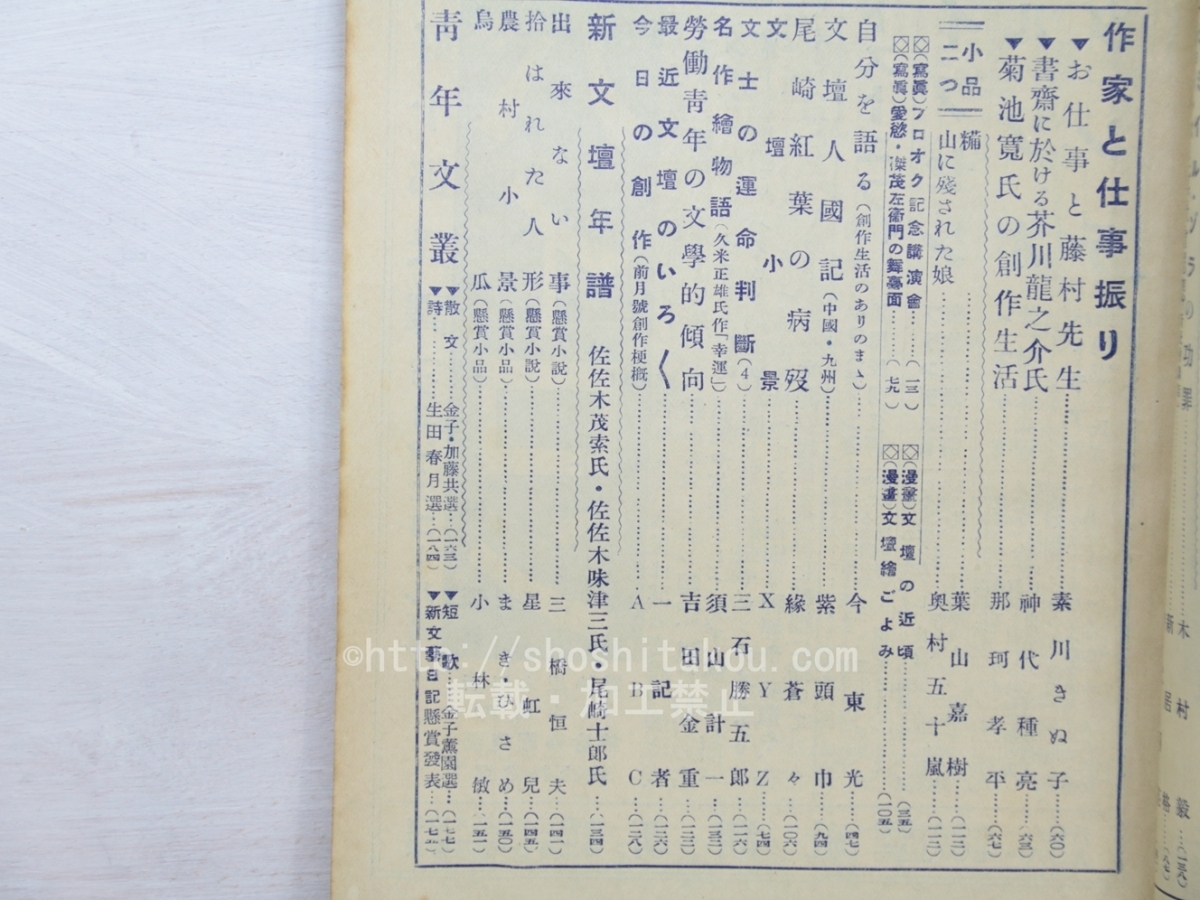 作家と仕事振り
▼お仕事と藤村先生……素川きぬ子……(六〇)
▼書齋に於ける芥川龍之介氏……神代種亮……(六三)
▼菊池寛氏の創作生活……那珂孝平……(六七)
小品二つ
糒……葉山嘉樹……(一一二)
山に殘された娘……奥村五十嵐……(一一二)
◇(寫眞)フロオク記念講演會……(一三)
◇(寫眞)愛慾・傑茂左衞門の舞臺面……(七九)
◇(漫畫)文壇の近頃……(三五)
◇(漫畫)文壇繪ごよみ……(一〇五)
自分を語る(創作生活のありのまゝ)……今東光……(四七)
文壇人國記(中國・九州)……紫頭巾……(九四)
尾崎紅葉の病歿……緣蒼々……(一〇六)
文壇小景……XYZ……(七四)
文士の運命判斷(4)……三石勝五郎……(一一六)
名作繪物語(久米正雄氏作「幸運」)……須山計一……(一三二)
勞働靑年の文學的傾向……吉田金重……(一二二)
最近文壇のいろ〱……一記者……(一二六)
今日の創作(前月號創作梗概)……ABC……(一二八)
新文壇年譜 佐佐木茂索氏・佐佐木味津三氏・尾崎士郎氏……(一三四)
出來ない事(懸賞小說)……三橋恒夫……(一四一)
拾はれた人形(懸賞小說)……星虹兒……(一四五)
農村小景(懸賞小品)……まき・ひさめ……(一五〇)
烏瓜(懸賞小品)……小林敏……(一五一)
靑年文叢
▼散文……金子・加藤共選……(一六三)
▼詩……生田春月選……(一八四)
▼短歌……金子薰園選……(一七七)
▼新文藝日記懸賞發表……
©http://shoshitakou.com
転載・加工禁止
功罪
木村毅
新居格